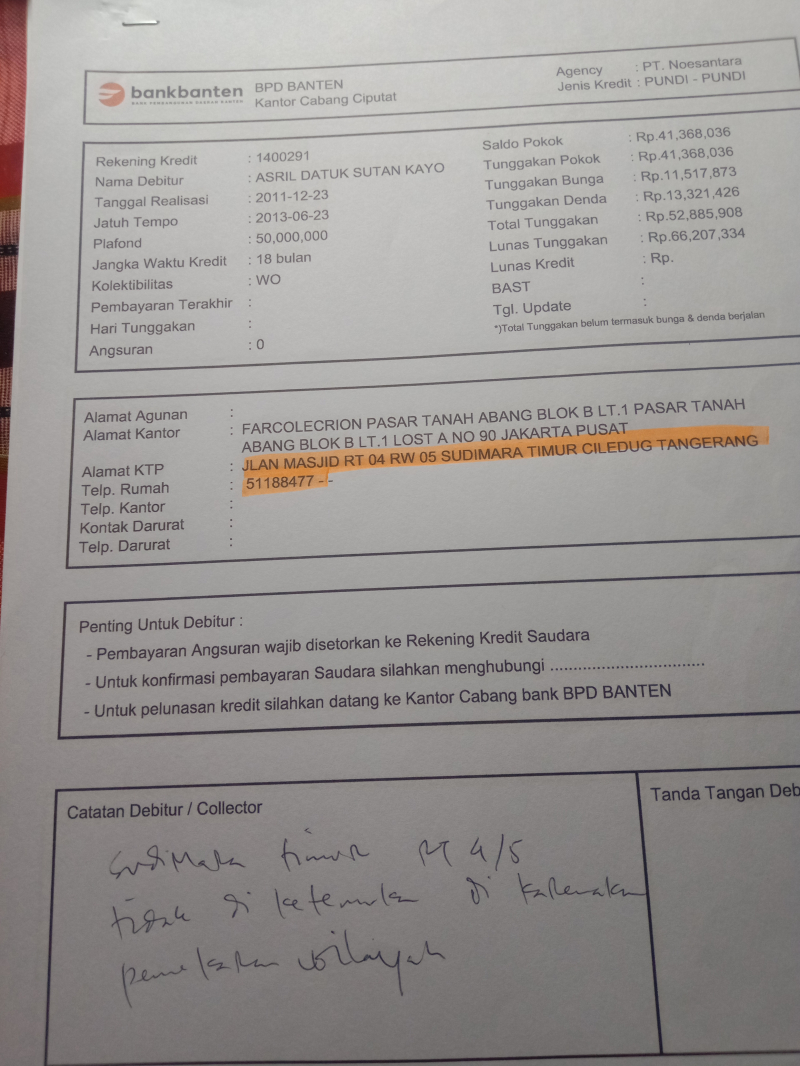 bankbanten
BPD BANTEN
Kantor Cabang Ciputat
Agency : PT. Noesantara
Jenis Kredit : PUNDI - PUNDI
Rekening Kredit : 1400291
Nama Debitur : ASRIL DATUK SUTAN KAYO
Tanggal Realisasi : 2011-12-23
Jatuh Tempo : 2013-06-23
Plafond : 50,000,000
Jangka Waktu Kredit : 18 bulan
Kolektibilitas : WO
Pembayaran Terakhir :
Hari Tunggakan :
Angsuran : 0
Saldo Pokok : Rp.41,368,036
Tunggakan Pokok : Rp.41,368,036
Tunggakan Bunga : Rp.11,517,873
Tunggakan Denda : Rp.13,321,426
Total Tunggakan : Rp.52,885,908
Lunas Tunggakan : Rp.66,207,334
Lunas Kredit : Rp.
BAST :
Tgl. Update :
*)Total Tunggakan belum termasuk bunga & denda berjalan
Alamat Agunan :
Alamat Kantor : FARCOLECRION PASAR TANAH ABANG BLOK B LT.1 PASAR TANAH
ABANG BLOK B LT.1 LOST A NO 90 JAKARTA PUSAT
Alamat KTP : JLAN MASJID RT 04 RW 05 SUDIMARA TIMUR CILEDUG TANGERANG
Telp. Rumah : 51188477 - -
Telp. Kantor :
Kontak Darurat :
Telp. Darurat :
Penting Untuk Debitur :
- Pembayaran Angsuran wajib disetorkan ke Rekening Kredit Saudara
- Untuk konfirmasi pembayaran Saudara silahkan menghubungi .................................
- Untuk pelunasan kredit silahkan datang ke Kantor Cabang bank BPD BANTEN
Catatan Debitur / Collector
Tanda Tangan Deb
Sudimara timur RT 4/5
tidak di ketemukan di karenakan
pemekaran wilayah